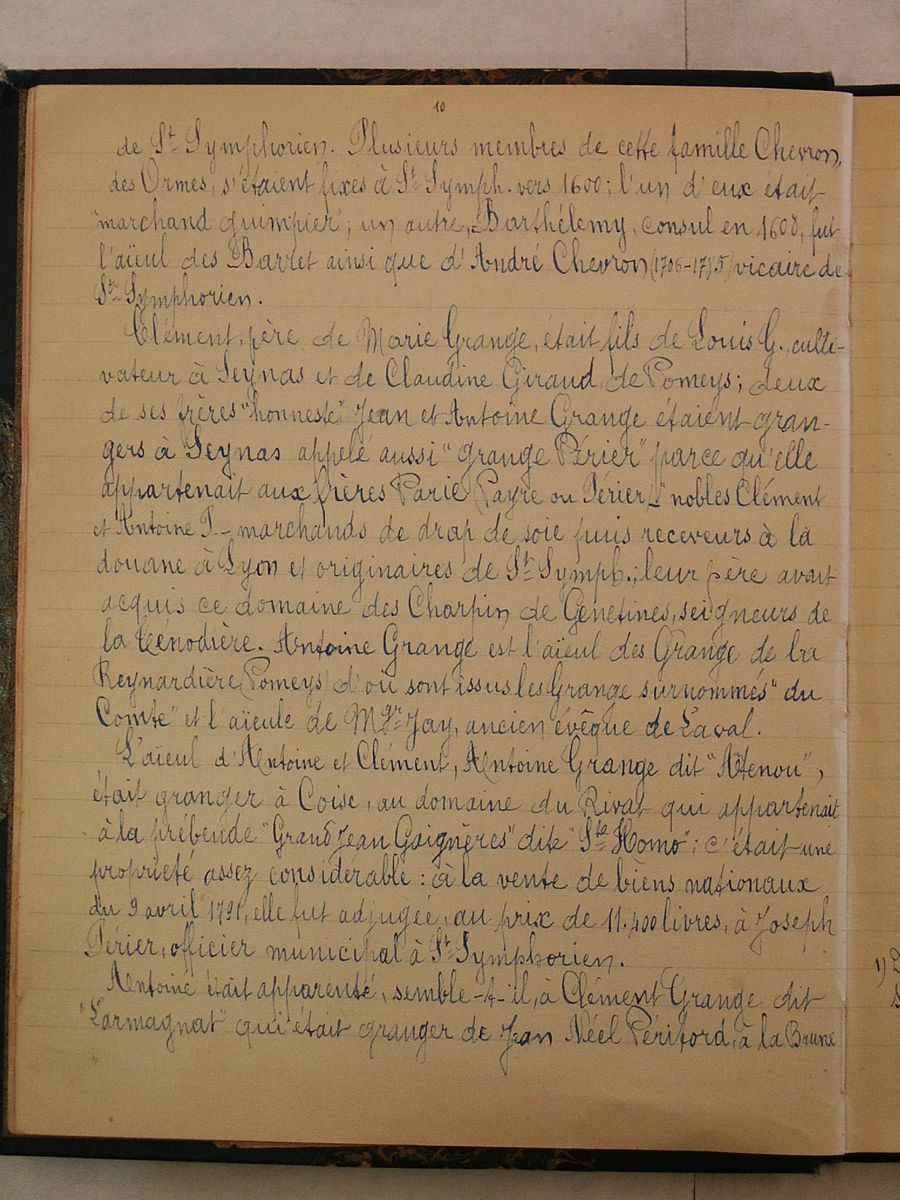 10
de St Symphorien. Plusieurs membres de cette famille Chevron,
des Ormes, s'étaient fixés à St Symph. vers 1600; l'un d'eux était
"marchand quimpier"; un autre, Barthélemy, consul en 1608, fut
l'aïeul des Barret ainsi que d'André Chevron (1706-1785) vicaire de
St Symphorien.
Clément, père de Marie Grange, était fils de Louis G., culti-
vateur à Seynas et de Claudine Giraud, de Pomeys; deux
de ses frères "honneste" Jean et Antoine Grange étaient gran-
gers à Seynas appelé aussi "Grange Périer" parce qu'elle
appartenait aux frères Parie (Payre ou Périer) - nobles Clément
et Antoine P. - marchands de drap de soie puis receveurs à la
douane à Lyon et originaires de St Symph.; leur père avait
acquis ce domaine des Charpin de Génetines, seigneurs de
la Rénodière. Antoine Grange est l'aïeul des Grange de la
Reynardière (Pomeys) d'où sont issus les Grange surnommés "du
Comte" et l'aïeule de Mgr Jay, ancien évêque de Laval.
L'aïeul d'Antoine et Clément, Antoine Grange dit "Atenou",
était granger à Coise, au domaine du Rivat qui appartenait
à la prébende "Grand Jean Gaignères" dite "Ste Homo"; c'était une
propriété assez considérable: à la vente de biens nationaux
du 9 avril 1791, elle fut adjugée, au prix de 11.400 livres, à Joseph
Périer, officier municipal à St Symphorien.
Antoine était apparenté, semble-t-il, à Clément Grange dit
"L'armagnat" qui était granger de Jean Néel Péritord, à la Brune
1)